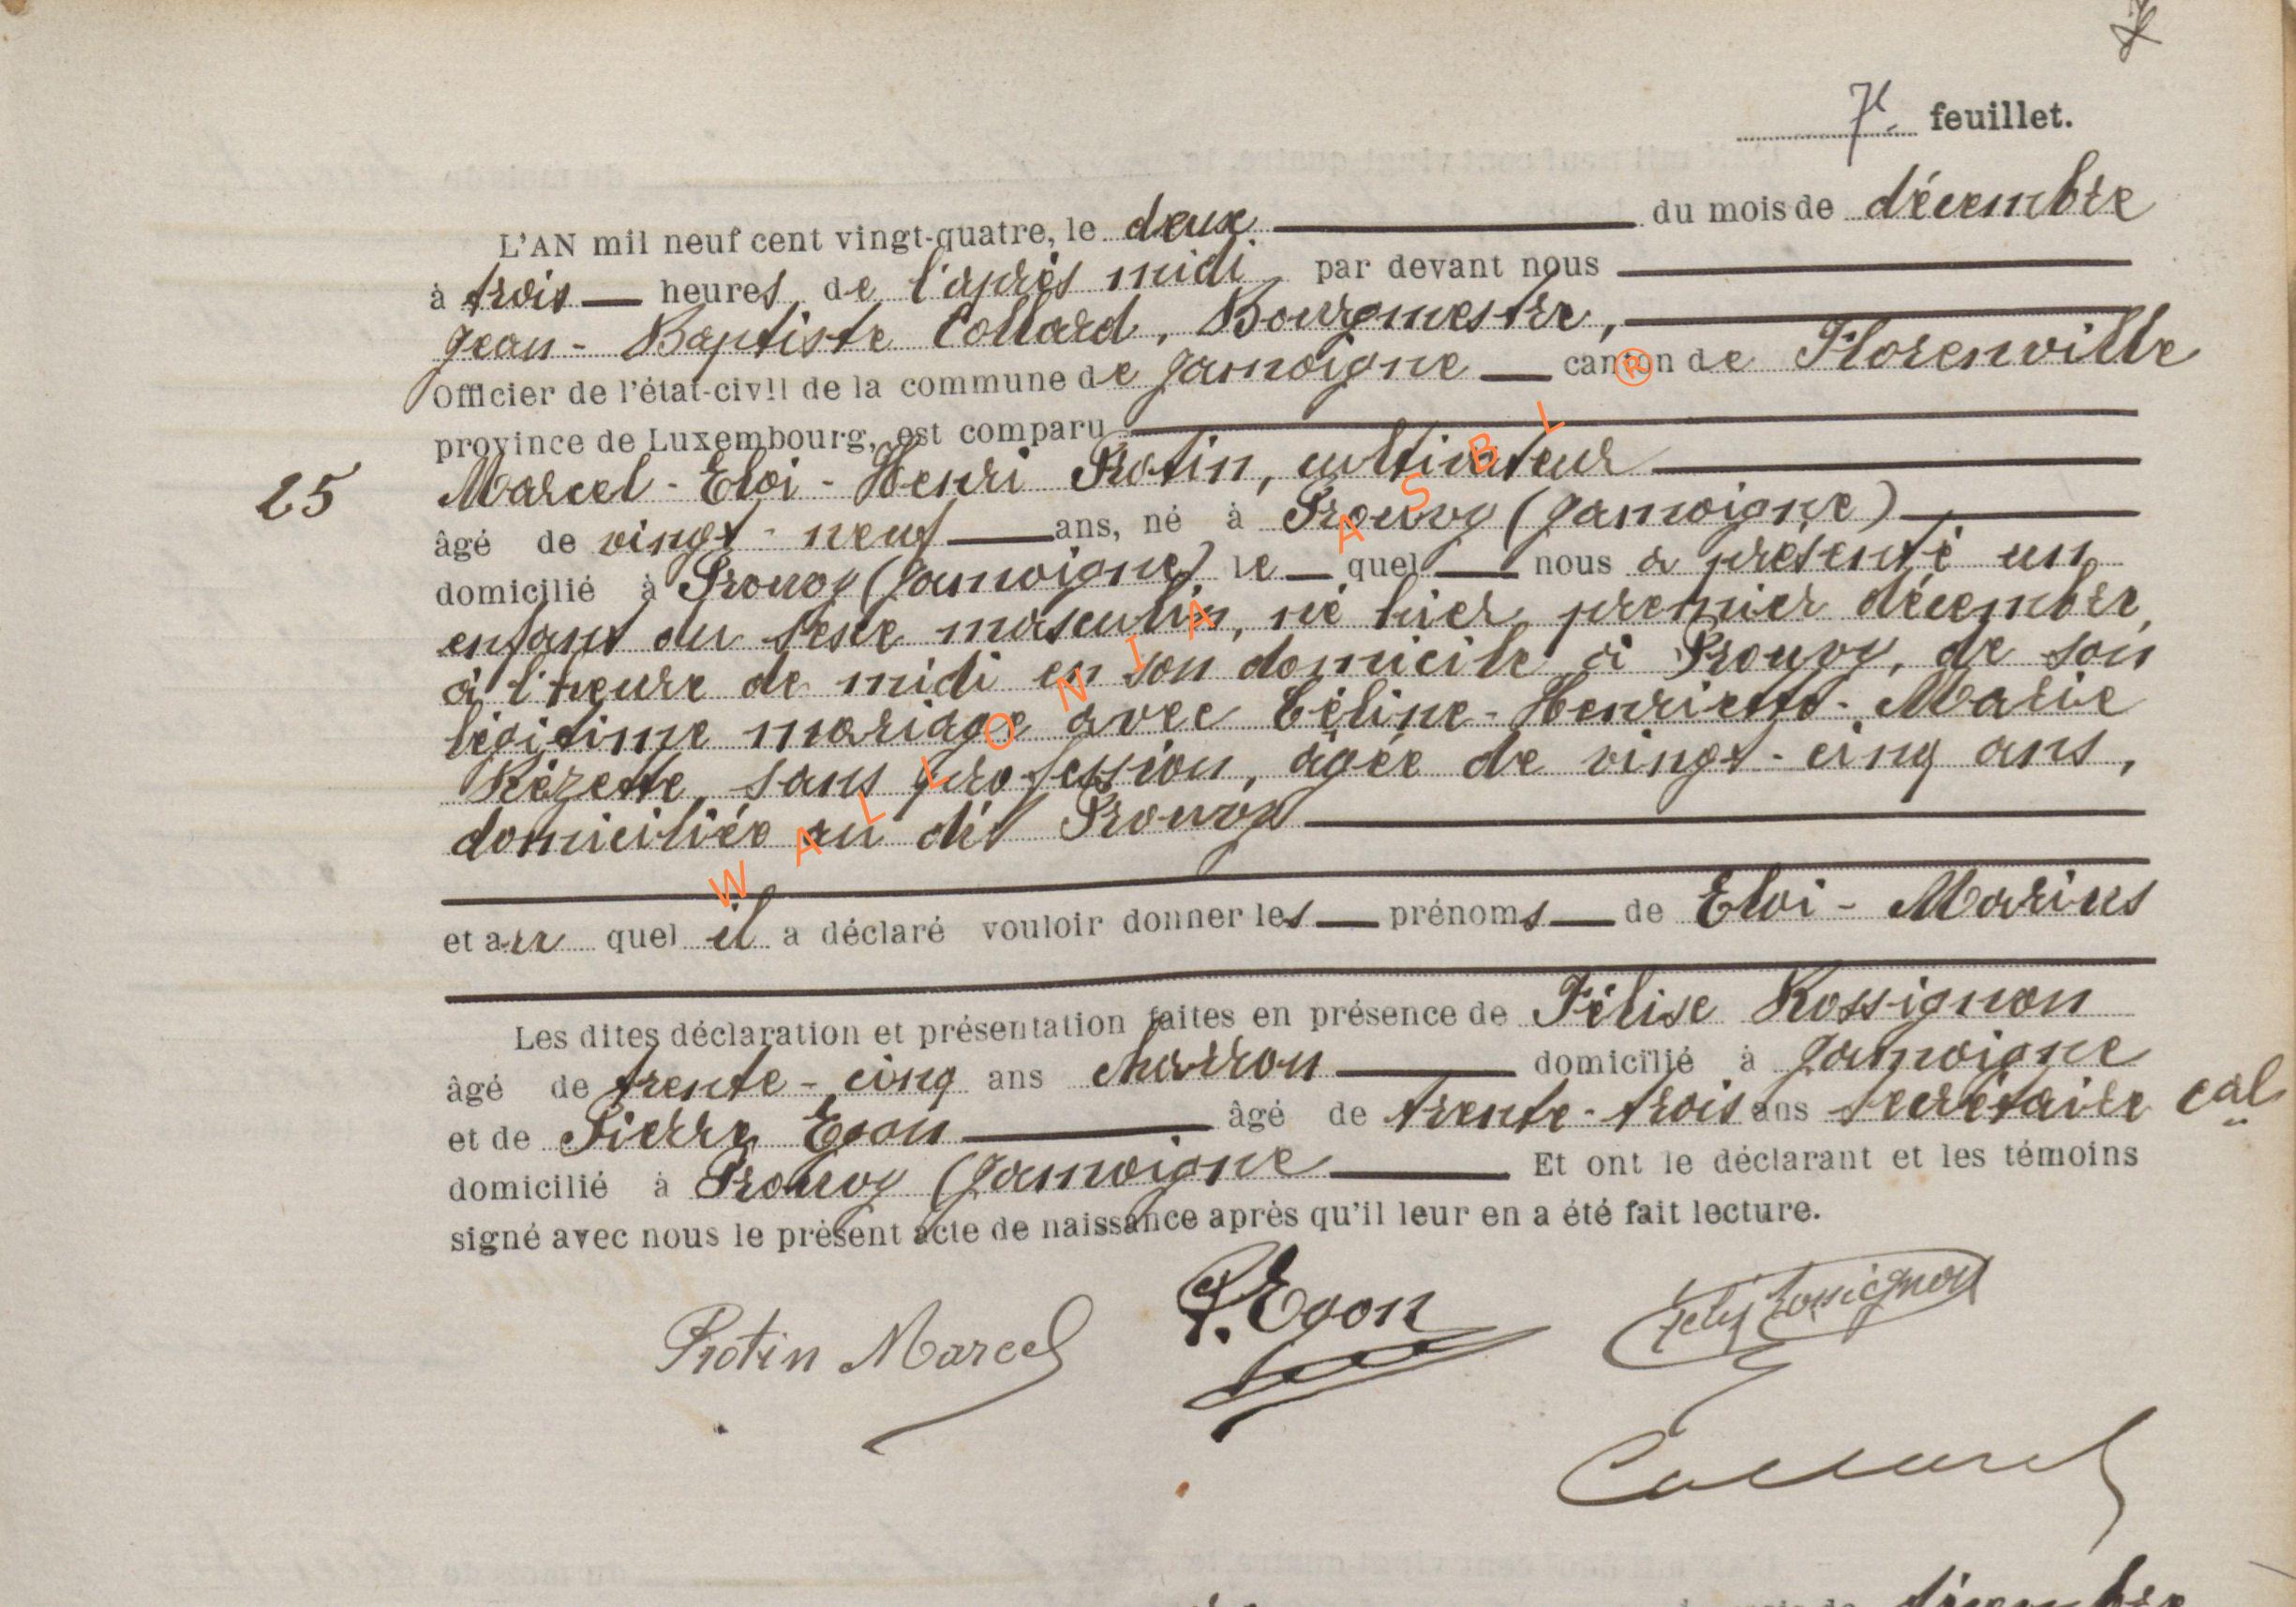 7e feuillet.
L'AN mil neuf cent vingt-quatre, le deux du mois de décembre
à trois heures de l'après midi par devant nous
Jean-Baptiste Collard, Bourgmestre,
Officier de l'état-civil de la commune de Jamoigne canton de Florenville
province de Luxembourg, est comparu
25 Marcel-Eloi-Henri Protin, cultivateur
âgé de vingt-neuf ans, né à Prouvy (Jamoigne)
domicilié à Prouvy (Jamoigne) le quel nous a présenté un
enfant du sexe masculin, né hier, premier décembre,
à l'heure de midi en son domicile à Prouvy, de son
légitime mariage avec Céline-Henriette-Marie
Rézette, sans profession, âgée de vingt-cinq ans,
domiciliée au dit Prouvy
et au quel il a déclaré vouloir donner les prénoms de Eloi-Marius
Les dites déclaration et présentation faites en présence de Félise Rossignon
âgé de trente-cinq ans charron domicilié à Jamoigne
et de Pierre Egon âgé de trente-trois ans secrétaire cal
domicilié à Prouvy (Jamoigne Et ont le déclarant et les témoins
signé avec nous le présent acte de naissance après qu'il leur en a été fait lecture.
Protin Marcel P. Egon Felix Rossignon
Collard
WALLONIA ASBL ®
décembre